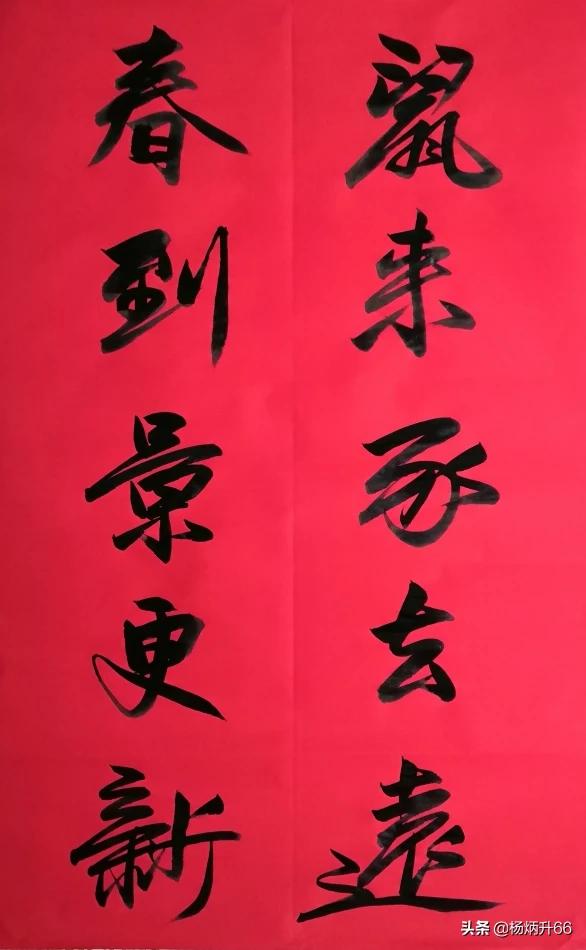 鼠来豕去遠
春到景更新
头条 @杨炳升66